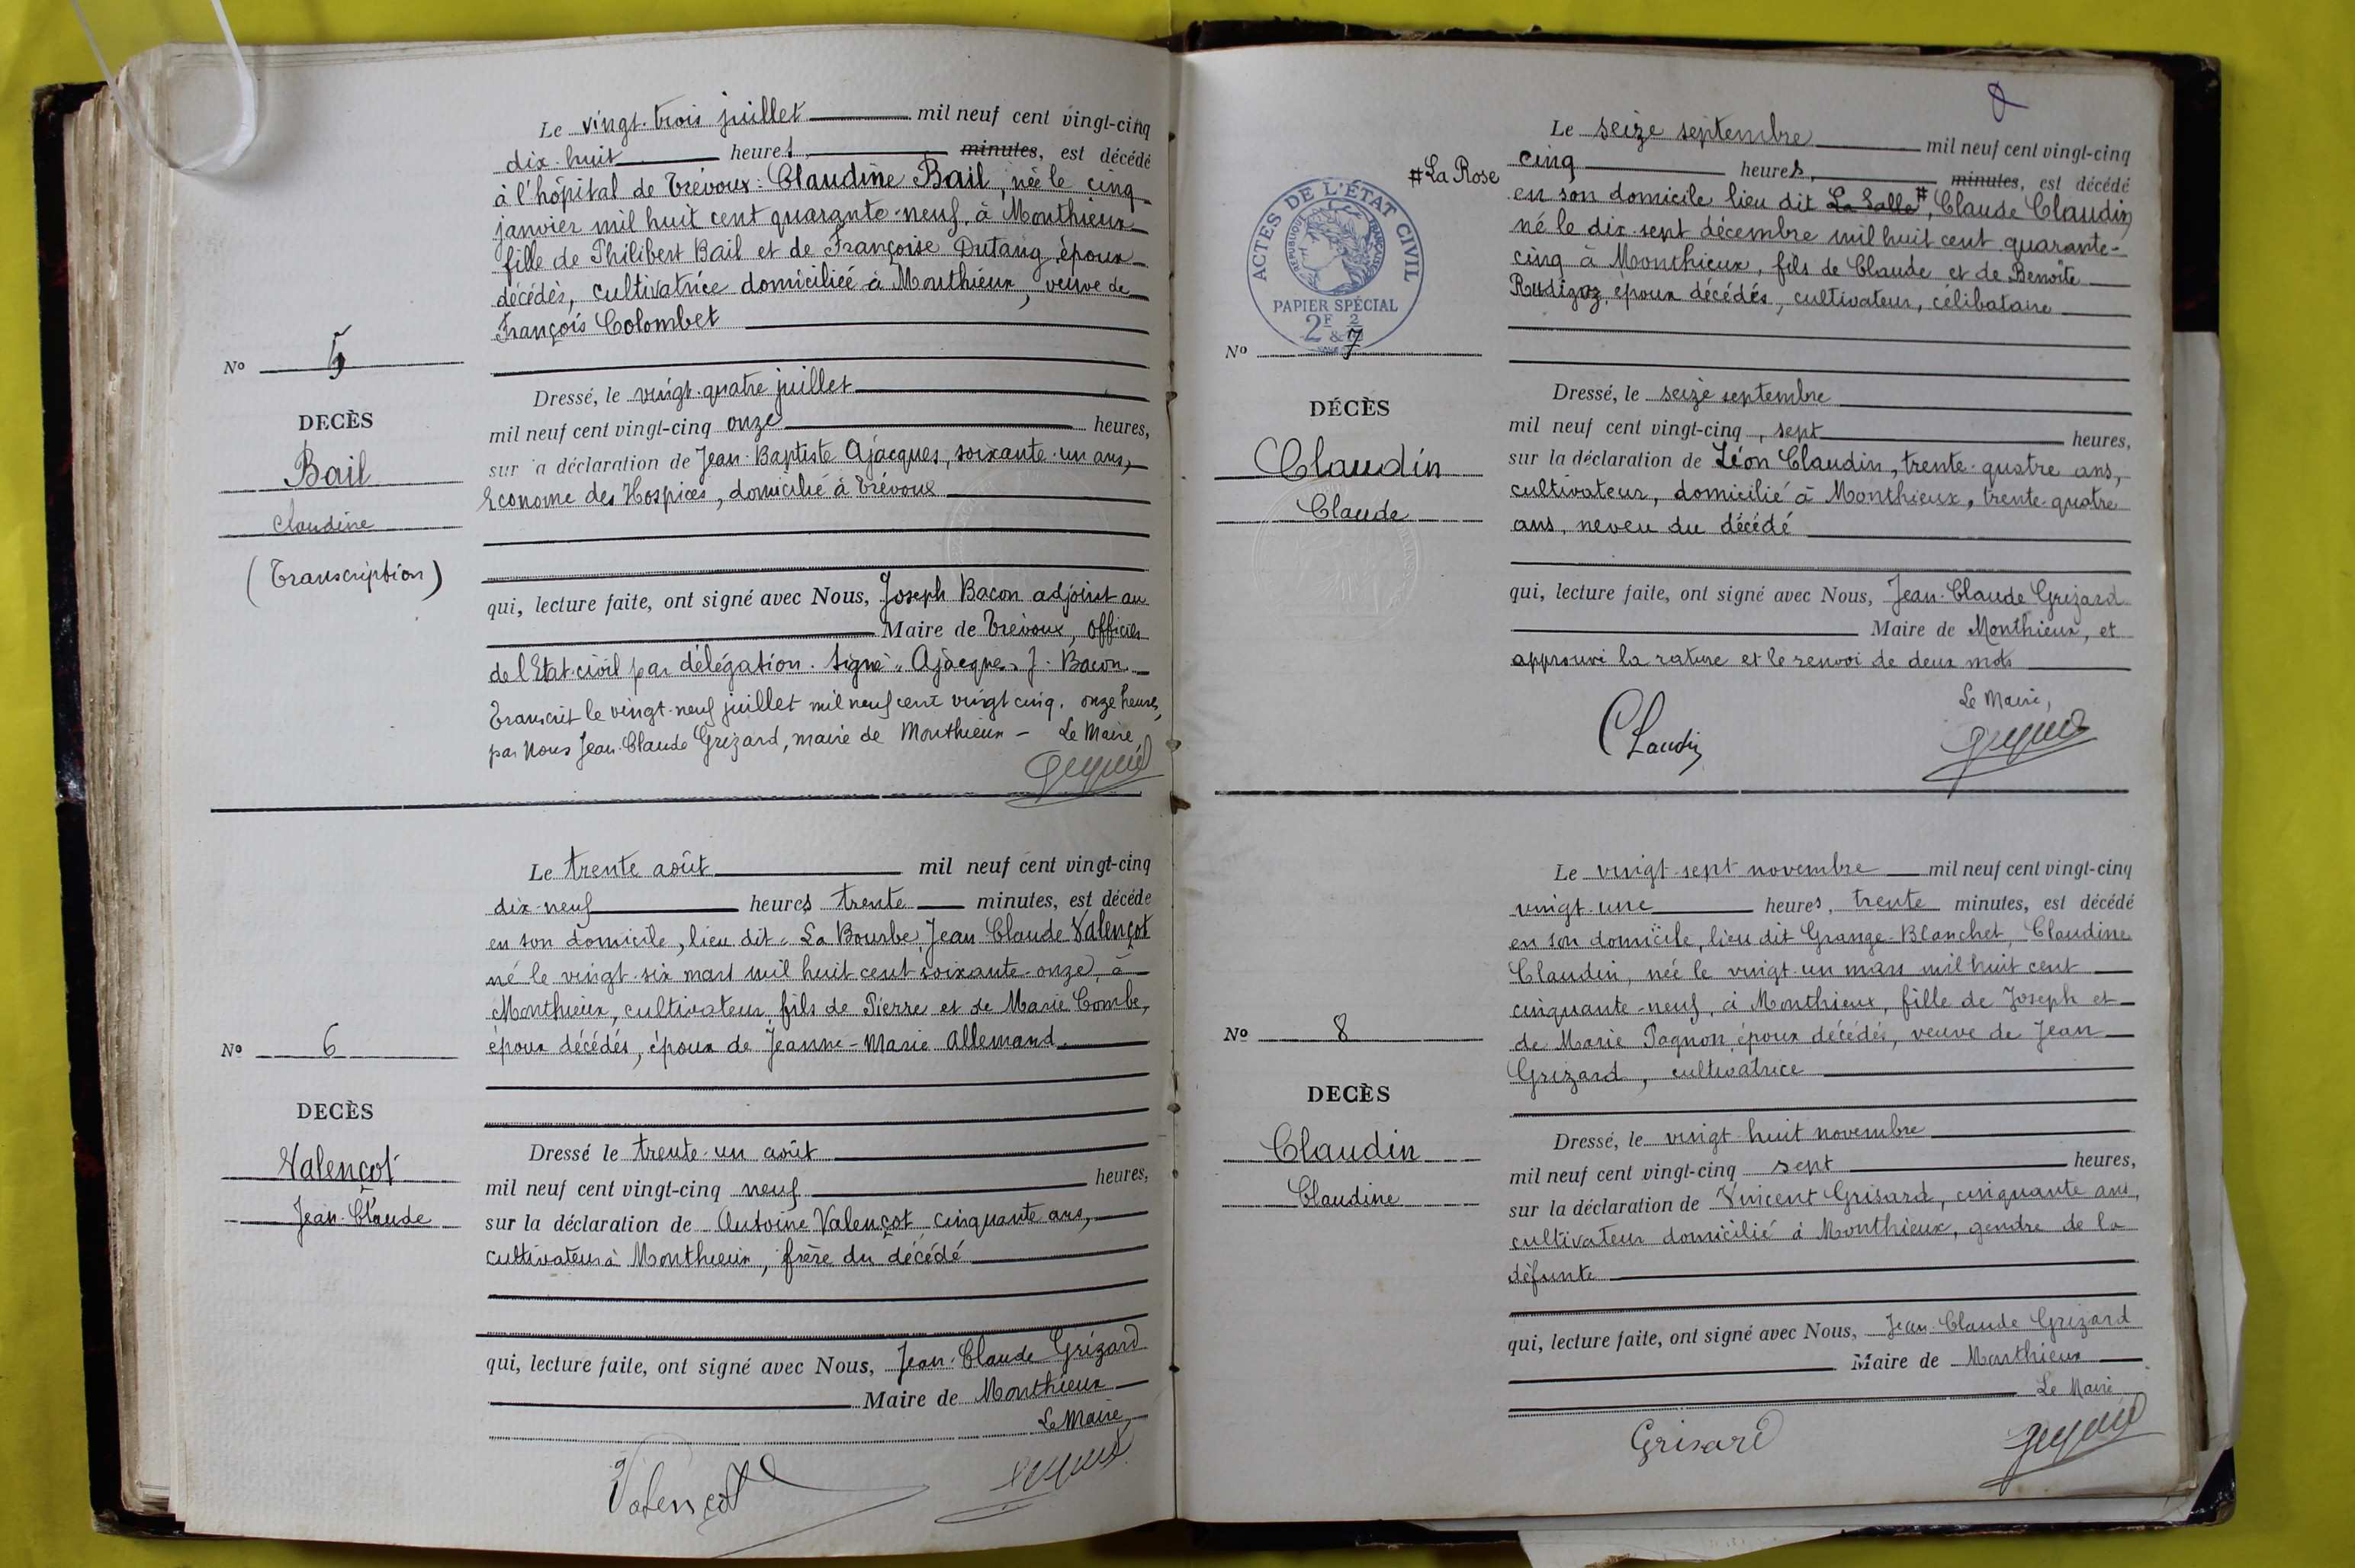 Le vingt-trois juillet mil neuf cent vingt-cinq
dix-huit heures, minutes, est décédé
à l'hôpital de Trévoux : Claudine Bail, née le cinq
janvier mil huit cent quarante-neuf, à Monthieux
fille de Philibert Bail et de Françoise Dutang, époux
décédés, cultivatrice domiciliée à Monthieux, veuve de
François Colombet
No 5
DECÈS
Bail
Claudine
(Transcription)
Dressé, le vingt-quatre juillet
mil neuf cent vingt-cinq onze heures,
sur a déclaration de Jean-Baptiste Ajacques, soixante-un ans,
Econome des Hospices, domicilié à Trévoux
qui, lecture faite, ont signé avec Nous, Joseph Bacon adjoint au
Maire de Trévoux, Officier
de l'Etat-civil par délégation. Signé : Ajacques, J. Bacon
Transcrit le vingt-neuf juillet mil neuf cent vingt cinq, onze heures,
par Nous Jean-Claude Grizard, maire de Monthieux - Le Maire,
Le trente août mil neuf cent vingt-cinq
dix-neuf heures trente minutes, est décédé
en son domicile, lieu dit La Bourbe, Jean Claude Valençot
né le vingt-six mars mil huit cent soixante-onze, à
Monthieux, cultivateur, fils de Pierre et de Marie Combe,
époux décédés, époux de Jeanne-Marie Allemand
No 6
DECÈS
Valençot
Jean-Claude
Dressé le trente-un août
mil neuf cent vingt-cinq neuf heures,
sur la déclaration de Antoine Valençot cinquante ans,
cultivateur à Monthieux, frère du décédé
qui, lecture faite, ont signé avec Nous, Jean-Claude Grizard
Maire de Monthieux
Le Maire,
Valençot
Le seize septembre mil neuf cent vingt-cinq
cinq heures, minutes, est décédé
#La Rose
en son domicile lieu dit La Salle #, Claude Claudin
né le dix-sept décembre mil huit cent quarante-
cinq à Monthieux, fils de Claude et de Benoîte
Rudigoz, époux décédés, cultivateur, célibataire
ACTES DE L'ÉTAT CIVIL
RÉPUBLIQUE FRANÇAISE
PAPIER SPÉCIAL
No 7
DÉCÈS
Claudin
Claude
Dressé, le seize septembre
mil neuf cent vingt-cinq, sept heures,
sur la déclaration de Léon Claudin, trente-quatre ans,
cultivateur, domicilié à Monthieux, trente-quatre
ans, neveu du décédé
qui, lecture faite, ont signé avec Nous, Jean-Claude Grizard
Maire de Monthieux, et
approuvé la rature et le renvoi de deux mots
Le Maire,
Claudin
Le vingt-sept novembre mil neuf cent vingt-cinq
vingt-une heures, trente minutes, est décédé
en son domicile, lieu dit Grange-Blanchet, Claudine
Claudin, née le vingt-un mars mil huit cent
cinquante-neuf, à Monthieux, fille de Joseph et
de Marie Pagnon, époux décédés, veuve de Jean
Grizard, cultivatrice
No 8
DECÈS
Claudin
Claudine
Dressé, le vingt-huit novembre
mil neuf cent vingt-cinq sept heures,
sur la déclaration de Vincent Grisard, cinquante ans,
cultivateur domicilié à Monthieux, gendre de la
défunte
qui, lecture faite, ont signé avec Nous, Jean-Claude Grizard
Maire de Monthieux
Le Maire
Grisard